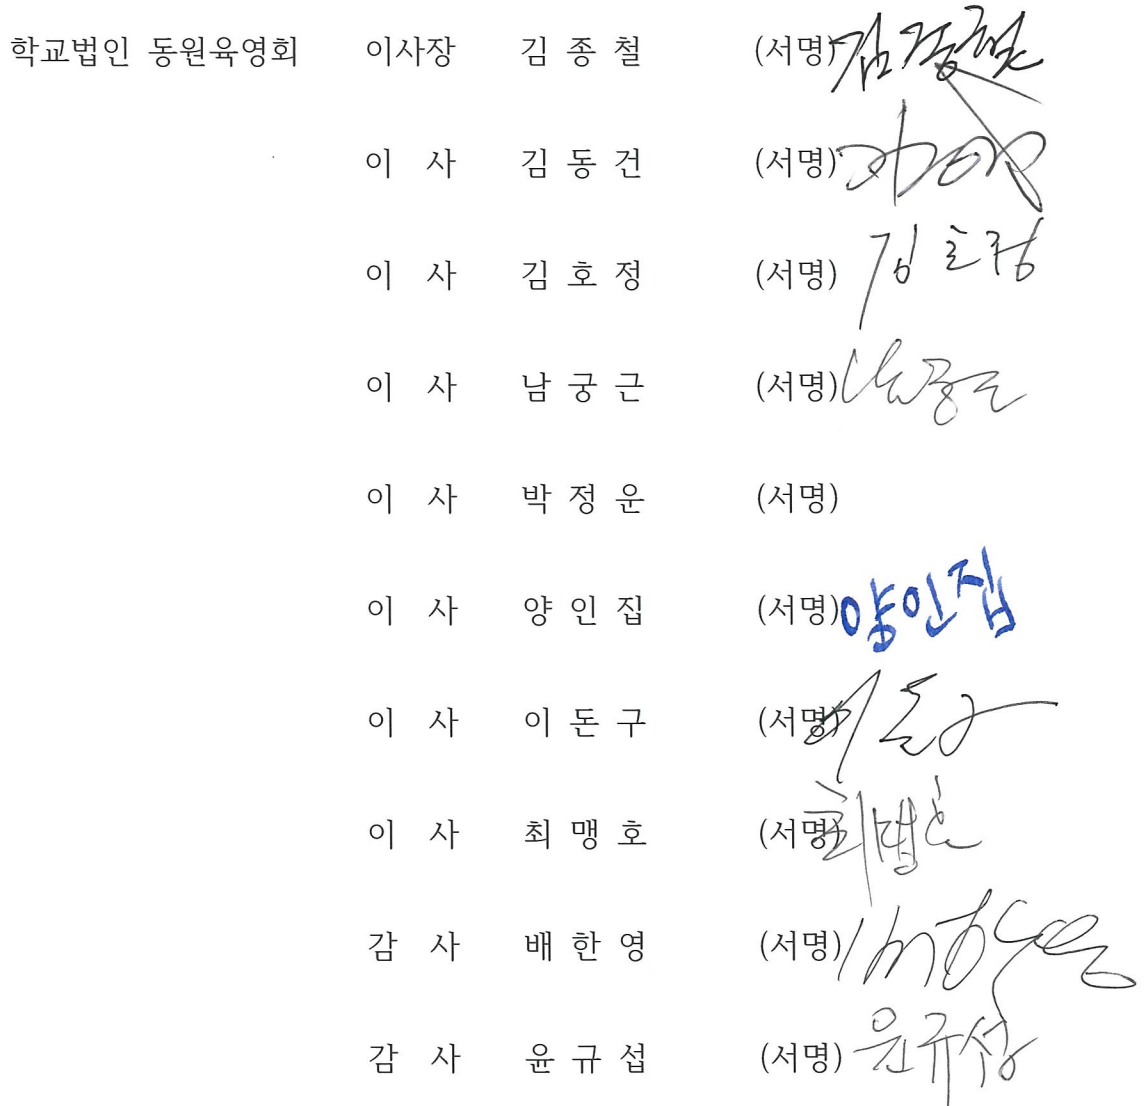 학교법인 동원육영회 이사장 김 종 철 (서명) 김종철
이 사 김 동 건 (서명)
이 사 김 호 정 (서명) 김호정
이 사 남 궁 근 (서명) 남궁근
이 사 박 정 운 (서명)
이 사 양 인 집 (서명) 양인집
이 사 이 돈 구 (서명) 이돈구
이 사 최 맹 호 (서명) 최맹호
감 사 배 한 영 (서명)
감 사 윤 규 섭 (서명) 윤규섭